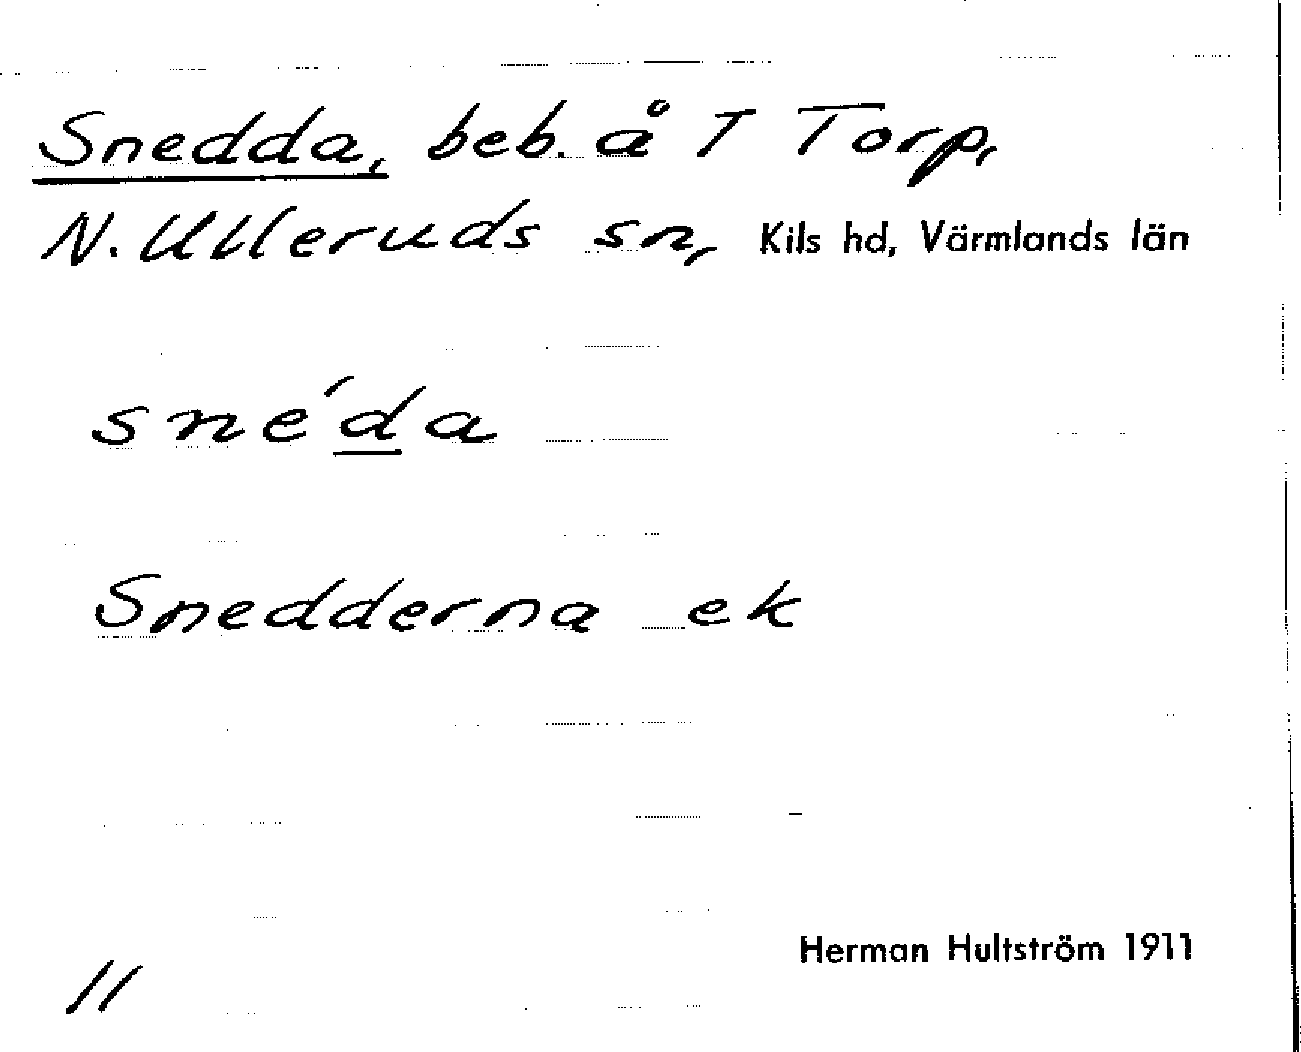 Snedda, beb. å T Torp,
N. Ulleruds sn, Kils hd, Värmlands län
sne´da
Snedderna ek
Herman Hultström 1911
11